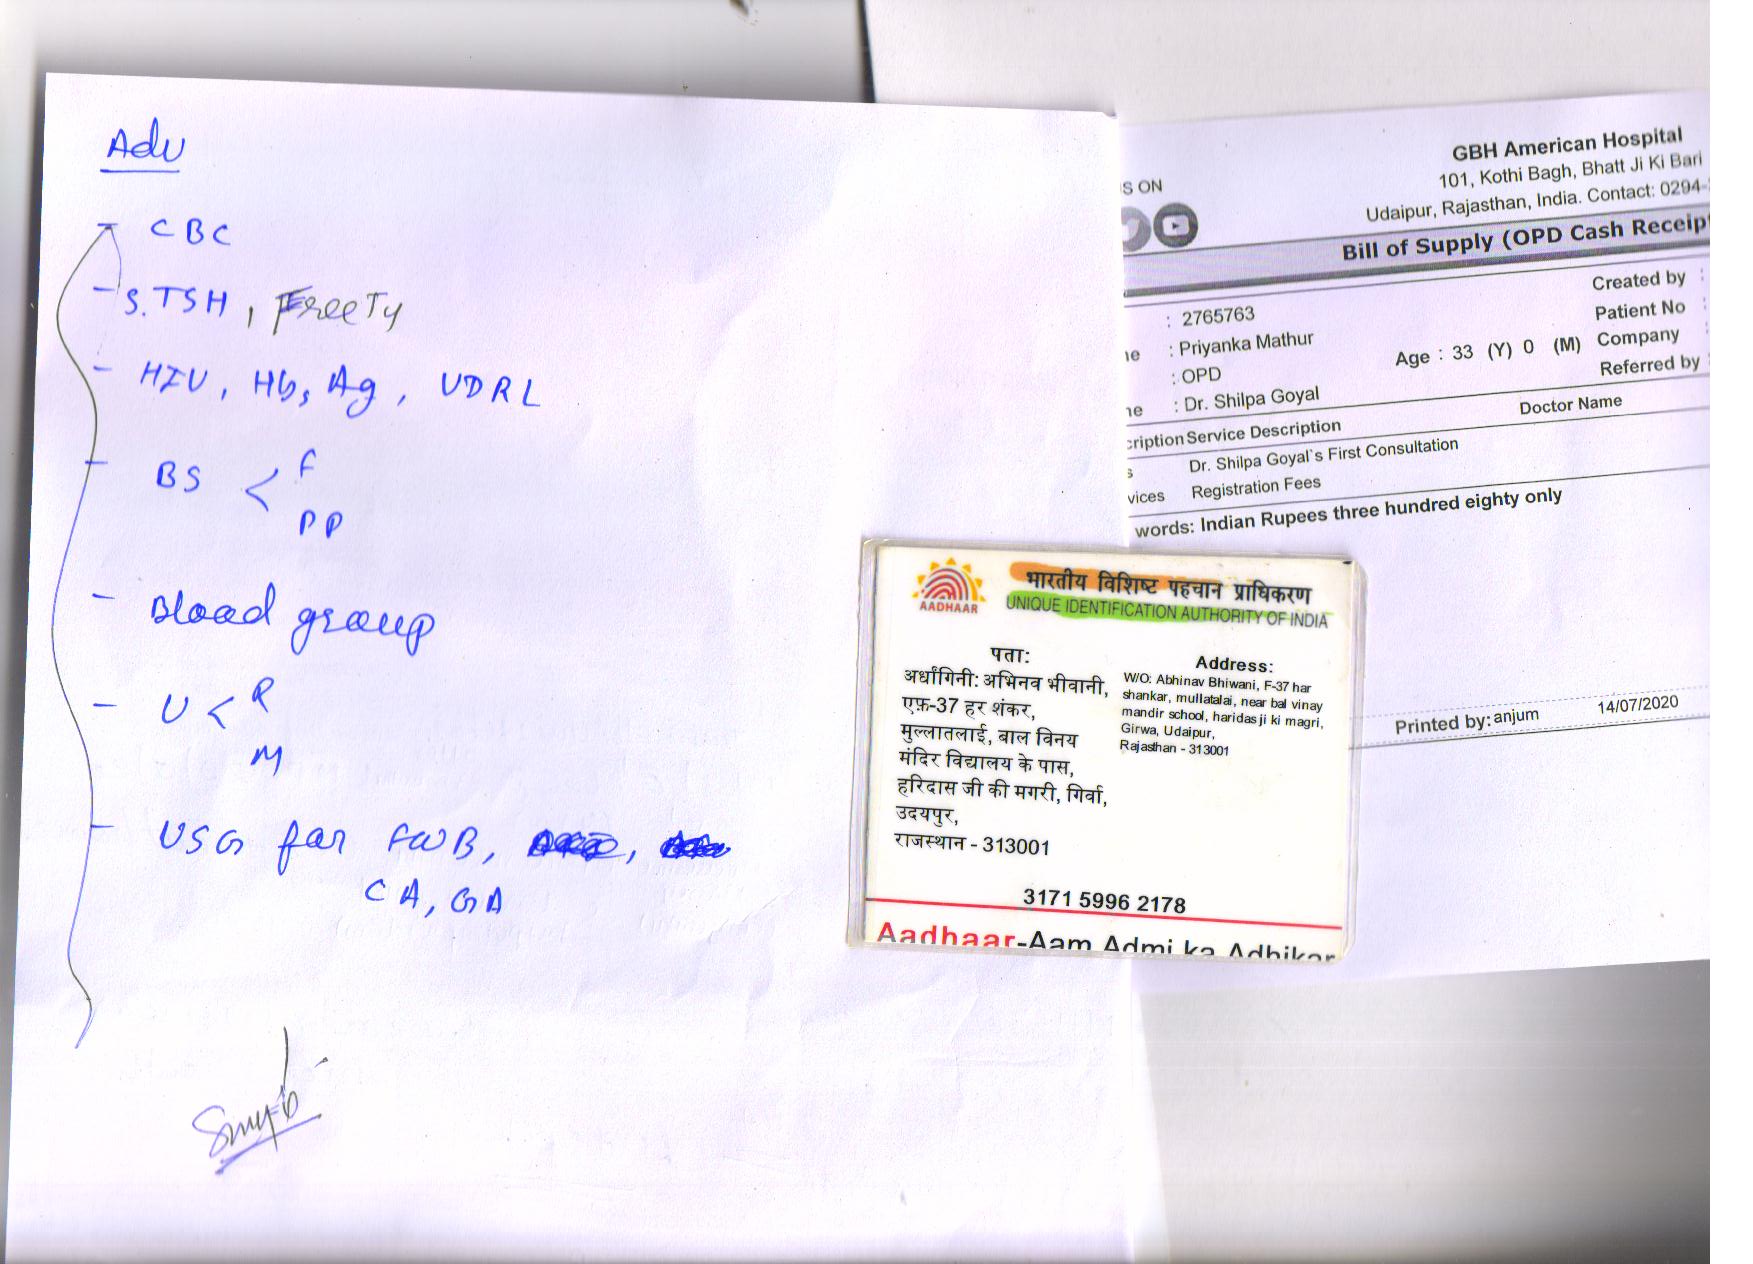 Adv
- CBC
- S.TSH, Free T4
- HIV, HbsAg, VDRL
- BS < F
PP
- Blood group
- U < R
M
- USG for FWB,
CA, GA
S ON
GBH American Hospital
101, Kothi Bagh, Bhatt Ji Ki Bari
Udaipur, Rajasthan, India. Contact: 0294-
Bill of Supply (OPD Cash Receip
Created by :
: 2765763
Patient No :
: Priyanka Mathur
Age : 33 (Y) 0 (M) Company :
: OPD
Referred by :
: Dr. Shilpa Goyal
Doctor Name
cription Service Description
s Dr. Shilpa Goyal`s First Consultation
vices Registration Fees
words: Indian Rupees three hundred eighty only
Printed by: anjum 14/07/2020
AADHAAR
भारतीय विशिष्ट पहचान प्राधिकरण
UNIQUE IDENTIFICATION AUTHORITY OF INDIA
पता:
अर्धांगिनी: अभिनव भीवानी,
एफ़-37 हर शंकर,
मुल्लातलाई, बाल विनय
मंदिर विद्यालय के पास,
हरिदास जी की मगरी, गिर्वा,
उदयपुर,
राजस्थान - 313001
Address:
W/O: Abhinav Bhiwani, F-37 har
shankar, mullatalai, near bal vinay
mandir school, haridas ji ki magri,
Girwa, Udaipur,
Rajasthan - 313001
3171 5996 2178
Aadhaar-Aam Admi ka Adhikar